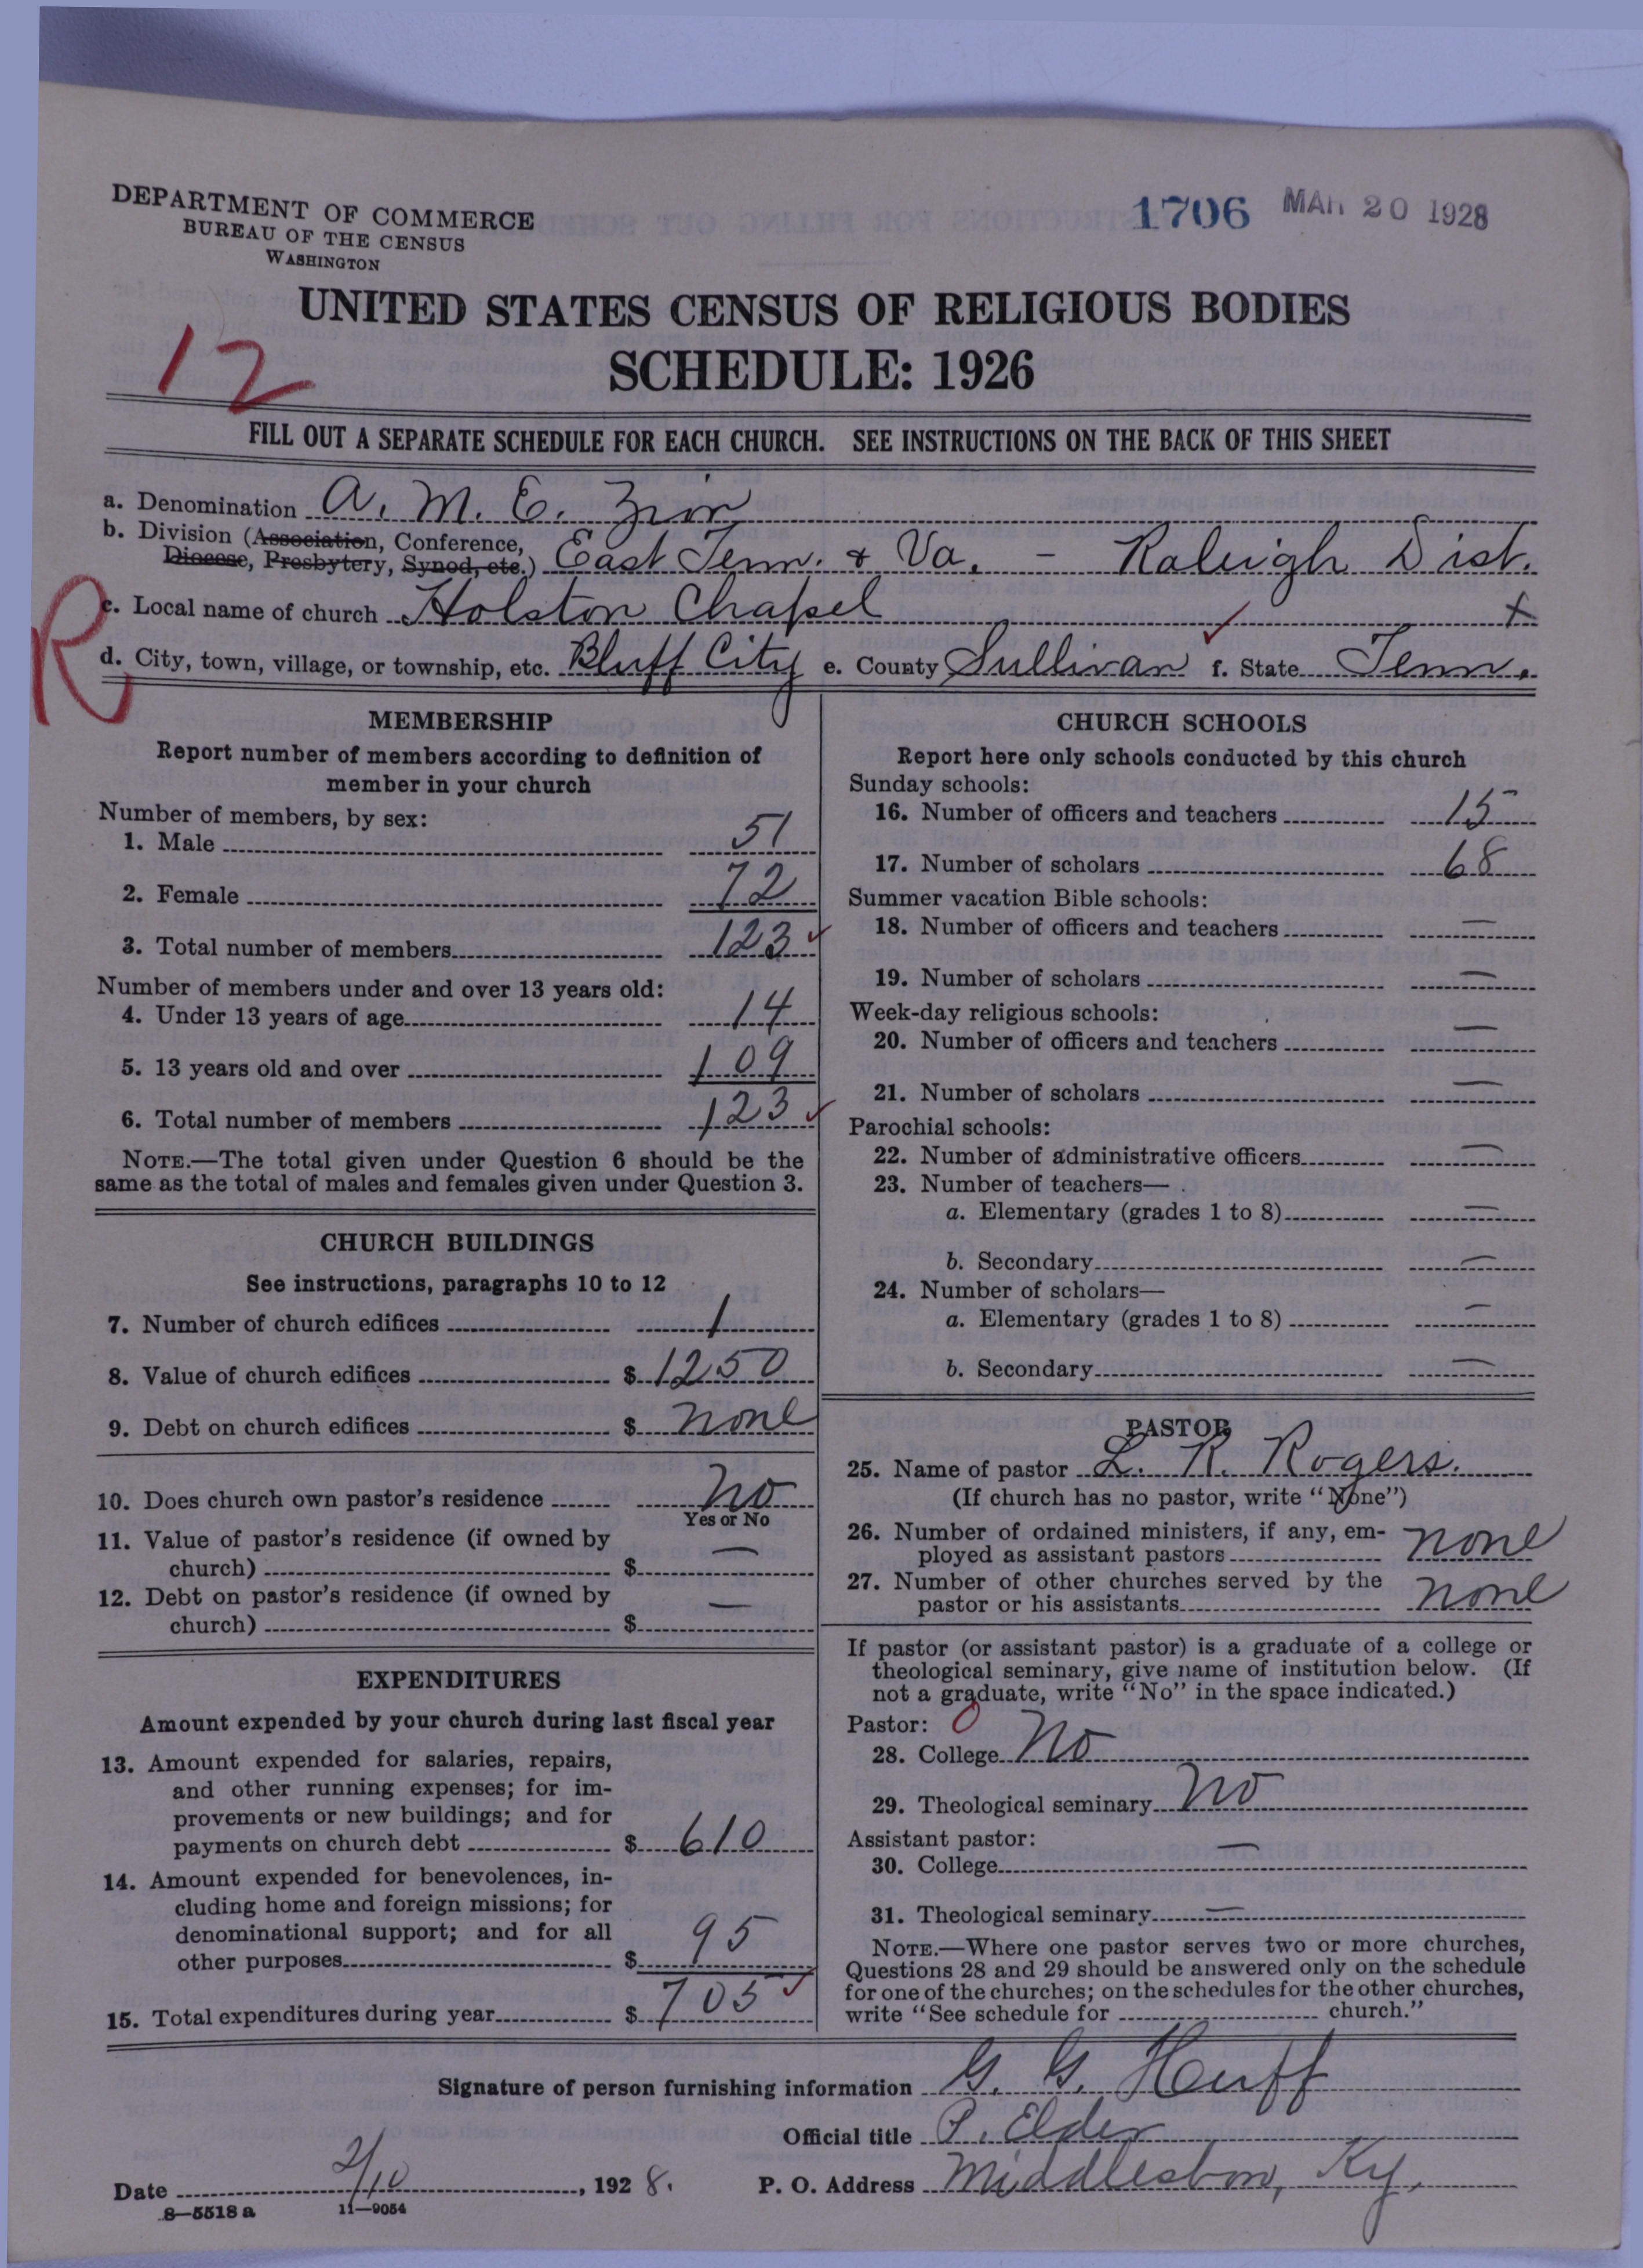 DEPARTMENT OF COMMERCE
BUREAU OF THE CENSUS
WASHINGTON
1706 MAR 20 1928
UNITED STATES CENSUS OF RELIGIOUS BODIES
SCHEDULE: 1926
12
FILL OUT A SEPARATE SCHEDULE FOR EACH CHURCH. SEE INSTRUCTIONS ON THE BACK OF THIS SHEET
a. Denomination A. M. E. Zion
b. Division (Association, Conference,
Diocese, Presbytery, Synod, etc.) East Tenn. & Va. - Raleigh Dist.
R
c. Local name of church Holston Chapel x
d. City, town, village, or township, etc. Bluff City e. County Sullivan ✓ f. State Tenn.
MEMBERSHIP
Report number of members according to definition of
member in your church
Number of members, by sex:
1. Male 51
2. Female 72
3. Total number of members 123 ✓
Number of members under and over 13 years old:
4. Under 13 years of age 14
5. 13 years old and over 109
6. Total number of members 123 ✓
NOTE.—The total given under Question 6 should be the
same as the total of males and females given under Question 3.
CHURCH BUILDINGS
See instructions, paragraphs 10 to 12
7. Number of church edifices 1
8. Value of church edifices $ 1250
9. Debt on church edifices $ none
10. Does church own pastor's residence no
Yes or No
11. Value of pastor's residence (if owned by
church) $ —
12. Debt on pastor's residence (if owned by
church) $ —
EXPENDITURES
Amount expended by your church during last fiscal year
13. Amount expended for salaries, repairs,
and other running expenses; for im-
provements or new buildings; and for
payments on church debt $ 610
14. Amount expended for benevolences, in-
cluding home and foreign missions; for
denominational support; and for all
other purposes $ 95
15. Total expenditures during year $ 705 ✓
CHURCH SCHOOLS
Report here only schools conducted by this church
Sunday schools:
16. Number of officers and teachers 15
17. Number of scholars 68
Summer vacation Bible schools:
18. Number of officers and teachers —
19. Number of scholars —
Week-day religious schools:
20. Number of officers and teachers —
21. Number of scholars —
Parochial schools:
22. Number of administrative officers —
23. Number of teachers—
a. Elementary (grades 1 to 8) —
b. Secondary —
24. Number of scholars—
a. Elementary (grades 1 to 8) —
b. Secondary —
PASTOR
25. Name of pastor L. R. Rogers.
(If church has no pastor, write "None")
26. Number of ordained ministers, if any, em-
ployed as assistant pastors none
27. Number of other churches served by the
pastor or his assistants none
If pastor (or assistant pastor) is a graduate of a college or
theological seminary, give name of institution below. (If
not a graduate, write "No" in the space indicated.)
Pastor: 0
28. College No
29. Theological seminary No
Assistant pastor:
30. College —
31. Theological seminary —
NOTE.—Where one pastor serves two or more churches,
Questions 28 and 29 should be answered only on the schedule
for one of the churches; on the schedules for the other churches,
write "See schedule for church."
Signature of person furnishing information G. G. Huff
Official title P. Elder
Date 2/10, 1928. P. O. Address Middlesboro, Ky.
8—5518 a 11—9054